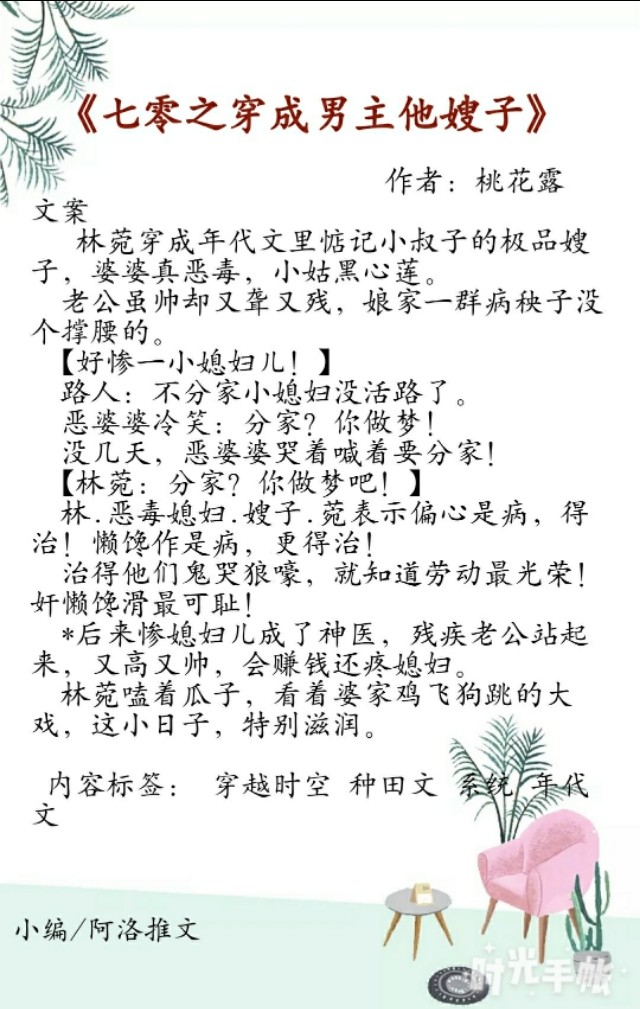 《七零之穿成男主他嫂子》
作者：桃花露
文案
林菀穿成年代文里惦记小叔子的极品嫂
子，婆婆真恶毒，小姑黑心莲。
老公虽帅却又聋又残，娘家一群病秧子没
个撑腰的。
【好惨一小媳妇儿！】
路人：不分家小媳妇没活路了。
恶婆婆冷笑：分家？你做梦！
没几天，恶婆婆哭着喊着要分家！
【林菀：分家？你做梦吧！】
林.恶毒媳妇.嫂子.菀表示偏心是病，得
治！懒馋作是病，更得治！
治得他们鬼哭狼嚎，就知道劳动最光荣！
奸懒馋滑最可耻！
*后来惨媳妇儿成了神医，残疾老公站起
来，又高又帅，会赚钱还疼媳妇。
林菀嗑着瓜子，看着婆家鸡飞狗跳的大
戏，这小日子，特别滋润。
内容标签： 穿越时空 种田文 系统 年代
文
小编/阿洛推文
时光手帐